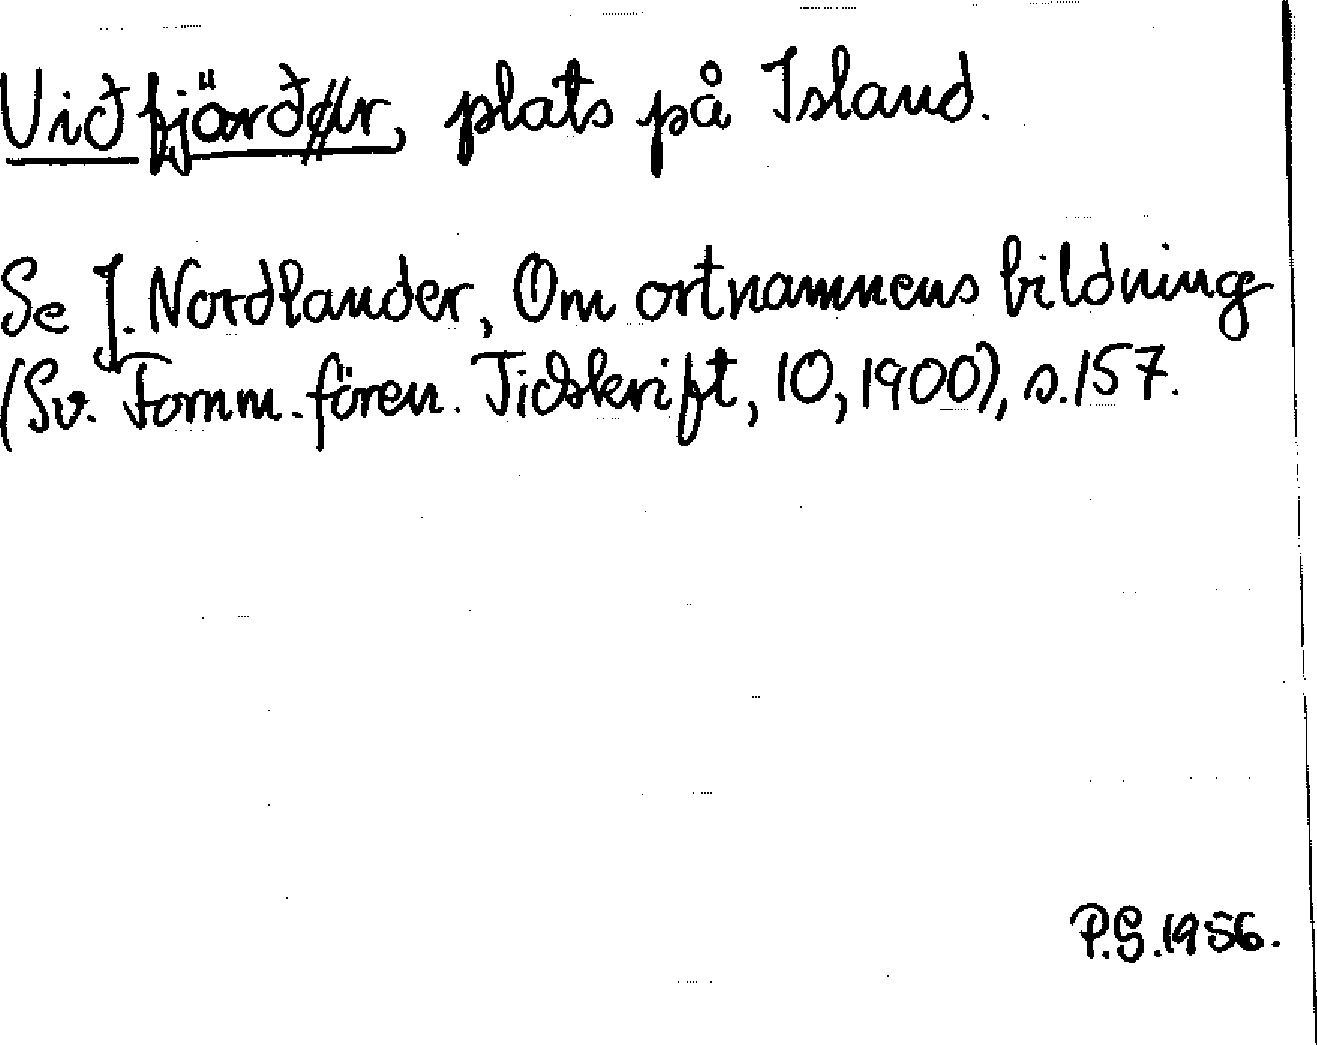 Viðfjärður, plats på Island.
Se J. Nordlander, Om ortnamnens bildning
(Sv. Fornm.-fören. Tidskrift, 10, 1900), s. 157.
P.G. 1956.